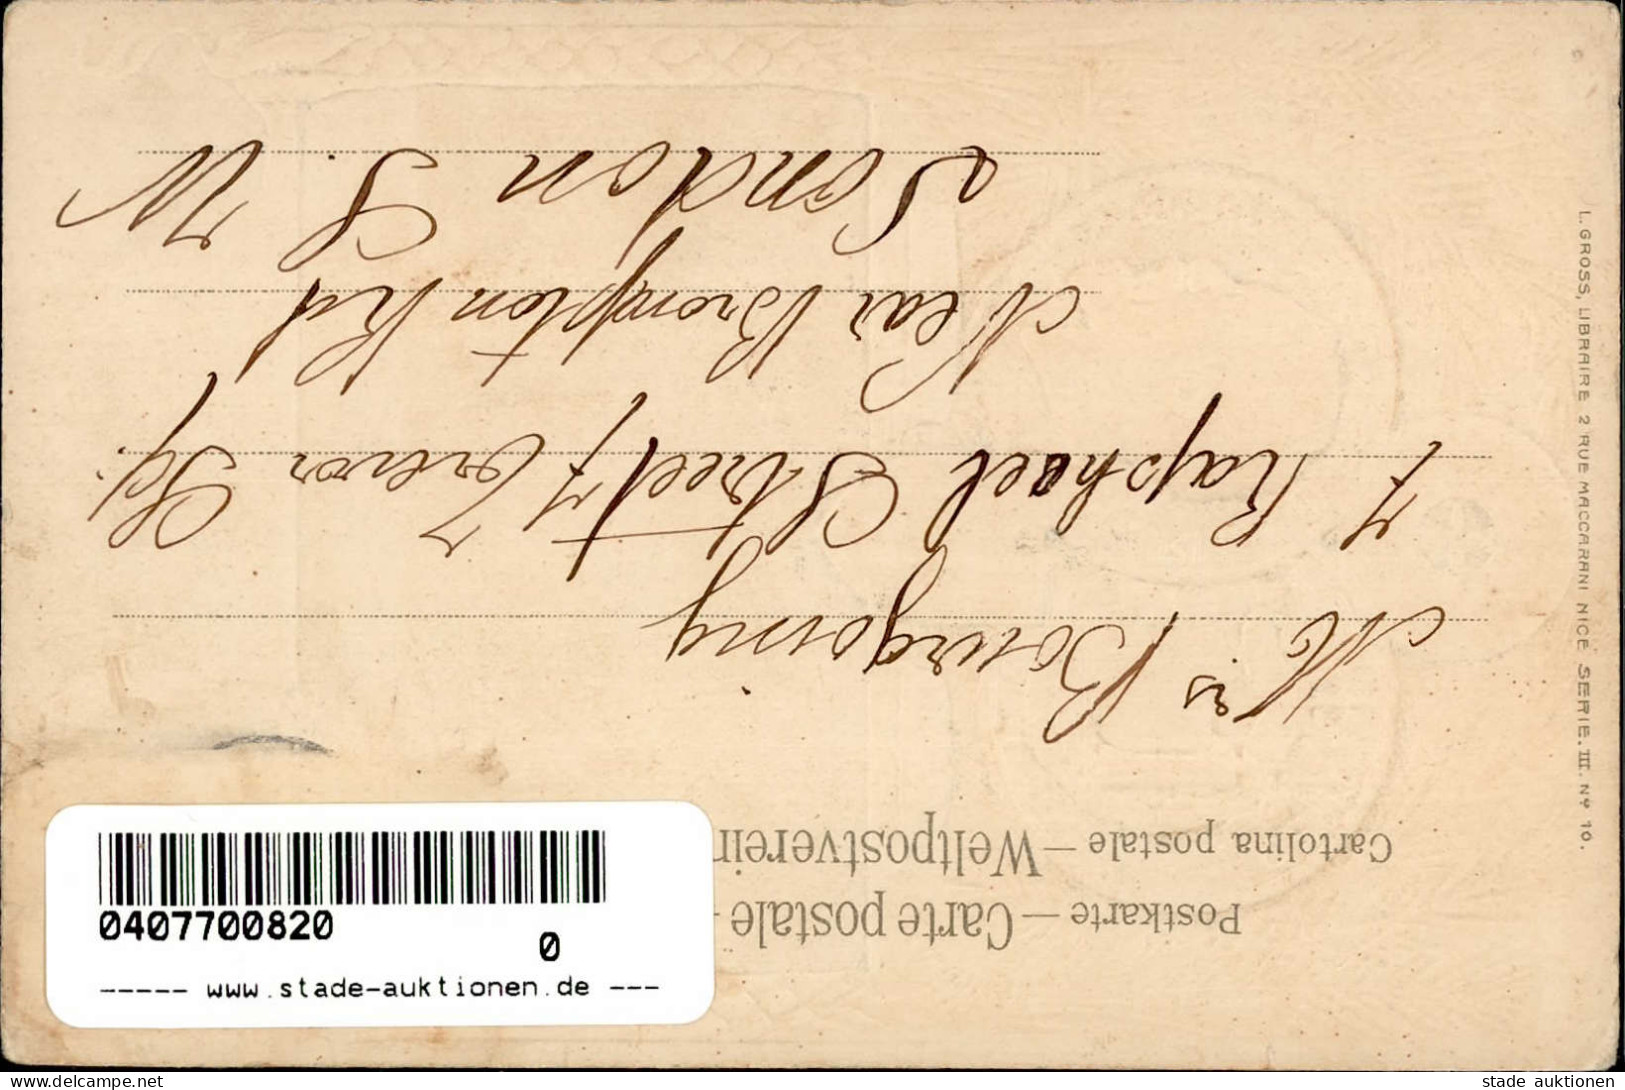 Postkarte — Carte postale —
Cartolina postale — Weltpostverein
Mrs Bourgoing
7 Raphael Street, Trevor Sq.
Near Brompton Rd
London S. W
L. GROSS, LIBRAIRE 2 RUE MACCARANI NICE SERIE. III. Nº 10.
0407700820
0
----- www.stade-auktionen.de ---
www.delcampe.net
stade auktionen